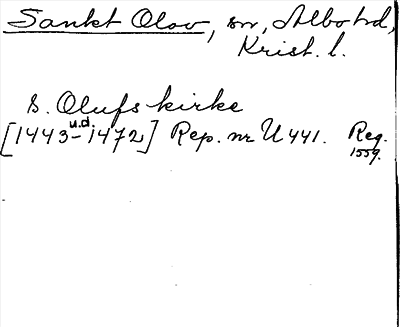 Sankt Olov, sn, Albo hd,
Krist. l.
S. Olufs kirke
[1443-1472] u.d. Rep. nr U 441. Reg.
1559.